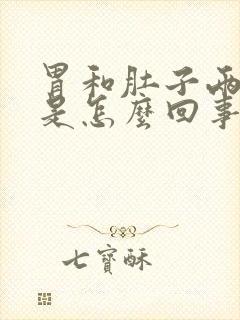 胃和肚子兩
是怎麼回事
七寶酥